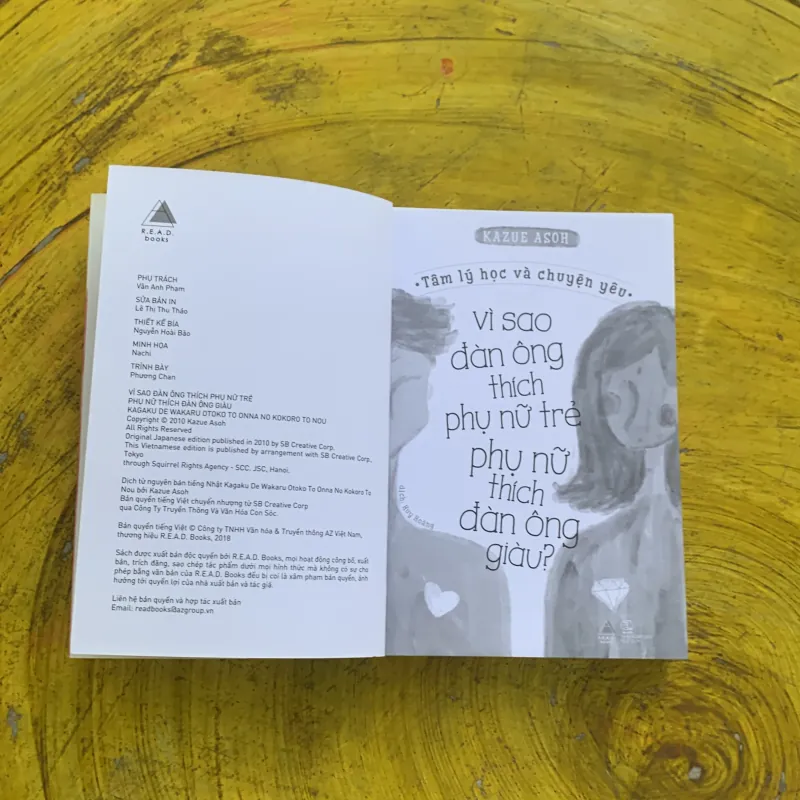 R.E.A.D.
books
PHỤ TRÁCH
Vân Anh Phạm
SỬA BẢN IN
Lê Thị Thu Thảo
THIẾT KẾ BÌA
Nguyễn Hoài Bảo
MINH HỌA
Nachi
TRÌNH BÀY
Phương Chan
VÌ SAO ĐÀN ÔNG THÍCH PHỤ NỮ TRẺ
PHỤ NỮ THÍCH ĐÀN ÔNG GIÀU
KAGAKU DE WAKARU OTOKO TO ONNA NO KOKORO TO NOU
Copyright © 2010 Kazue Asoh
All Rights Reserved
Original Japanese edition published in 2010 by SB Creative Corp.
This Vietnamese edition is published by arrangement with SB Creative Corp,
Tokyo
through Squirrel Rights Agency - SCC. JSC, Hanoi.
Dịch từ nguyên bản tiếng Nhật Kagaku De Wakaru Otoko To Onna No Kokoro To
Nou bởi Kazue Asoh
Bản quyền tiếng Việt chuyển nhượng từ SB Creative Corp
qua Công Ty Truyền Thông Và Văn Hóa Con Sóc.
Bản quyền tiếng Việt © Công ty TNHH Văn hóa & Truyền thông AZ Việt Nam,
thương hiệu R.E.A.D. Books, 2018
Sách được xuất bản độc quyền bởi R.E.A.D. Books, mọi hoạt động công bố, xuất
bản, trích đăng, sao chép tác phẩm dưới mọi hình thức mà không có sự cho
phép bằng văn bản của R.E.A.D. Books đều bị coi là xâm phạm bản quyền, ảnh
hưởng tới quyền lợi của nhà xuất bản và tác giả.
Liên hệ bản quyền và hợp tác xuất bản
Email: readbooks@azgroup.vn
KAZUE ASOH
•Tâm lý học và chuyện yêu•
vì sao
đàn ông
thích
phụ nữ trẻ
phụ nữ
thích
đàn ông
giàu?
dịch: Huy Hoàng
R.E.A.D.